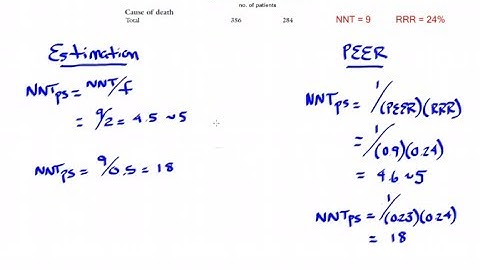 no. of patients
Cause of death
Total 356 284
NNT = 9 RRR = 24%
Estimation
NNTps = NNT/f
= 9/2 = 4.5 ~5
NNTps = 9/0.5 = 18
PEER
NNTps = 1/(PEER)(RRR)
= 1/(0.9)(0.24)
= 4.6 ~5
NNTps = 1/(0.23)(0.24)
= 18